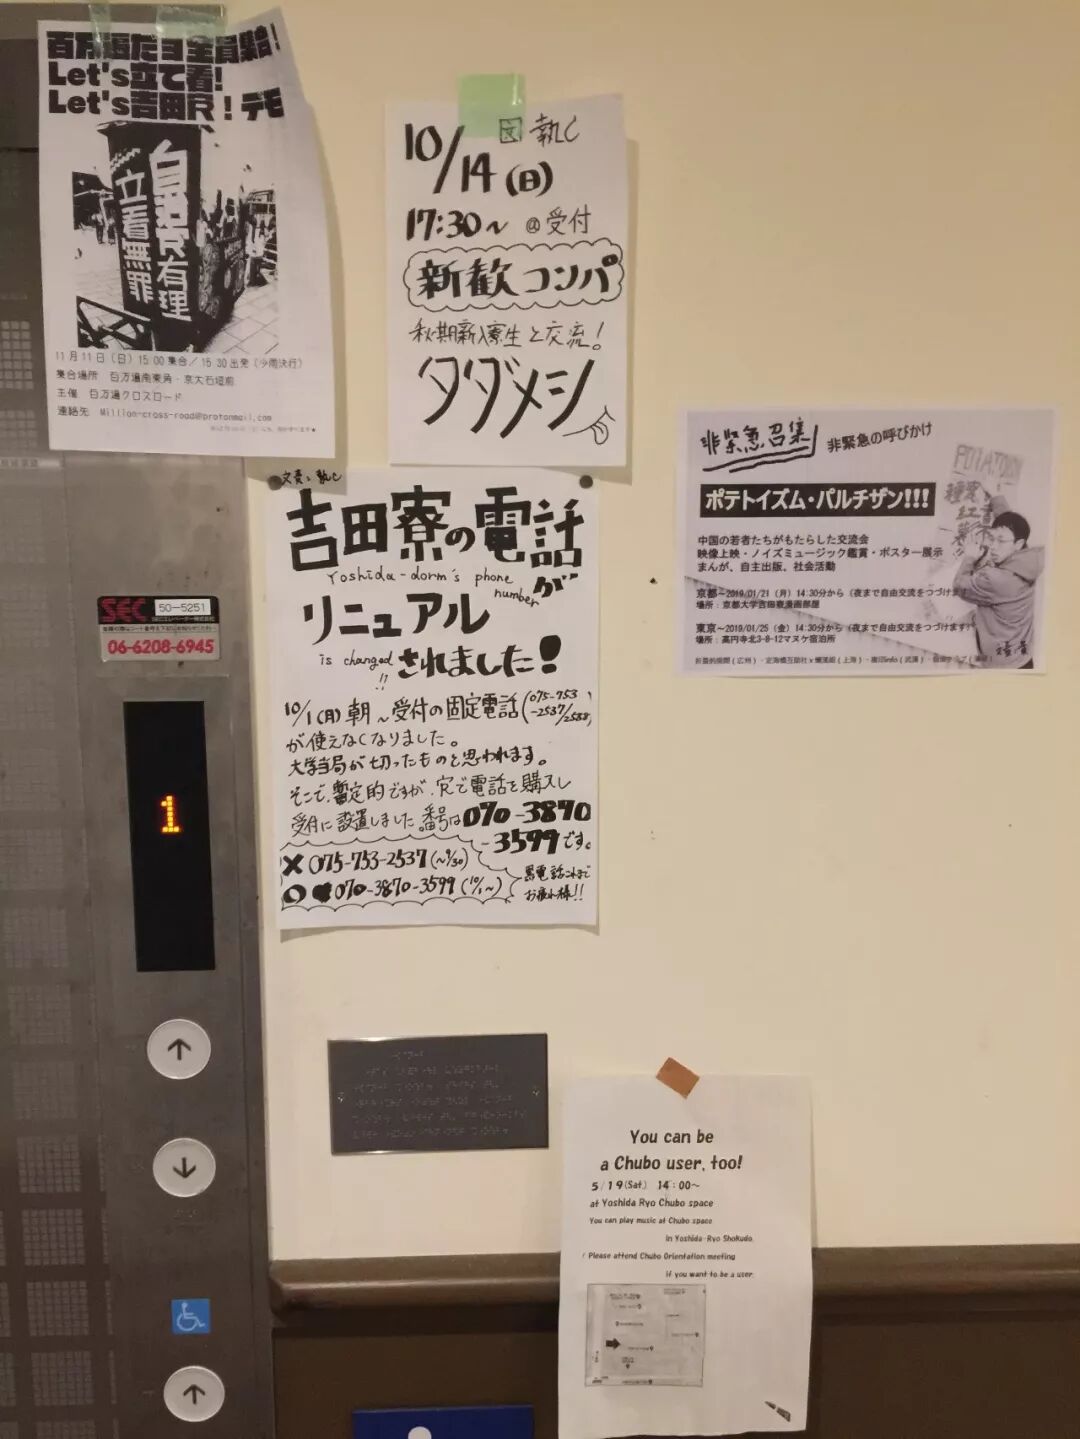 百万遍だヨ全員集合!
Let's立て看!
Let's吉田尺!デモ
自治有理
立看無罪
11月11日(日)15:00集合/15:30出発(少雨決行)
集合場所 百万遍南東角・京大石垣前
主催 百万遍クロスロード
連絡先 Million-cross-road@protonmail.com
文 執C
10/14(日)
17:30~ @受付
新歓コンパ
秋期新入寮生と交流!
タダメシ
文責:執C
吉田寮の電話が
Yoshida-dorm's phone number
リニューアル
is changed!!
されました!
10/1(月)朝~受付の固定電話(075-753-2537/2588)
が使えなくなりました。
大学当局が切ったものと思われます。
そこで、暫定的ですが、穴で電話を購入し
受付に設置しました。番号は070-3870
-3599です。
×075-753-2537(~9/30)
○070-3870-3599(10/1~)
黒電話これまで
お疲れ様!!
非緊急召集 非緊急の呼びかけ
ポテトイズム・パルチザン!!!
中国の若者たちがもたらした交流会
映像上映・ノイズミュージック鑑賞・ポスター展示
まんが、自主出版、社会活動
京都~2019/01/21(月)14:30分から(夜まで自由交流をつづけます)
場所:京都大学吉田寮漫画部屋
東京~2019/01/25(金)14:30分から(夜まで自由交流をつづけます)
場所:高円寺北3-8-12マヌケ宿泊所
SEC 50-5251
SECエレベーター株式会社
06-6208-6945
1
You can be
a Chubo user, too!
5/19(Sat) 14:00~
at Yoshida Ryo Chubo space
You can play music at Chubo space
in Yoshida-Ryo Shokudo.
Please attend Chubo Orientation meeting
if you want to be a user.